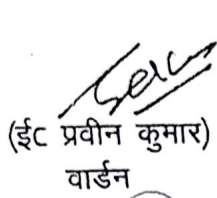 (ईC प्रवीन कुमार)
वार्डन